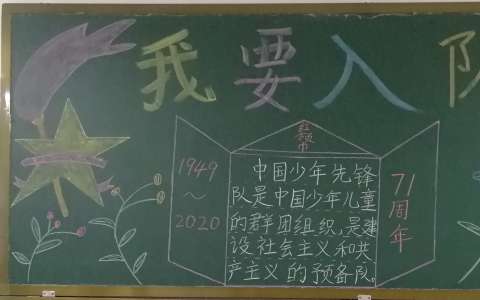 我要入队
红领巾
1949
~
2020
中国少年先锋
队是中国少年儿童
的群团组织,是建
设社会主义和共
产主义的预备队。
71
周
年